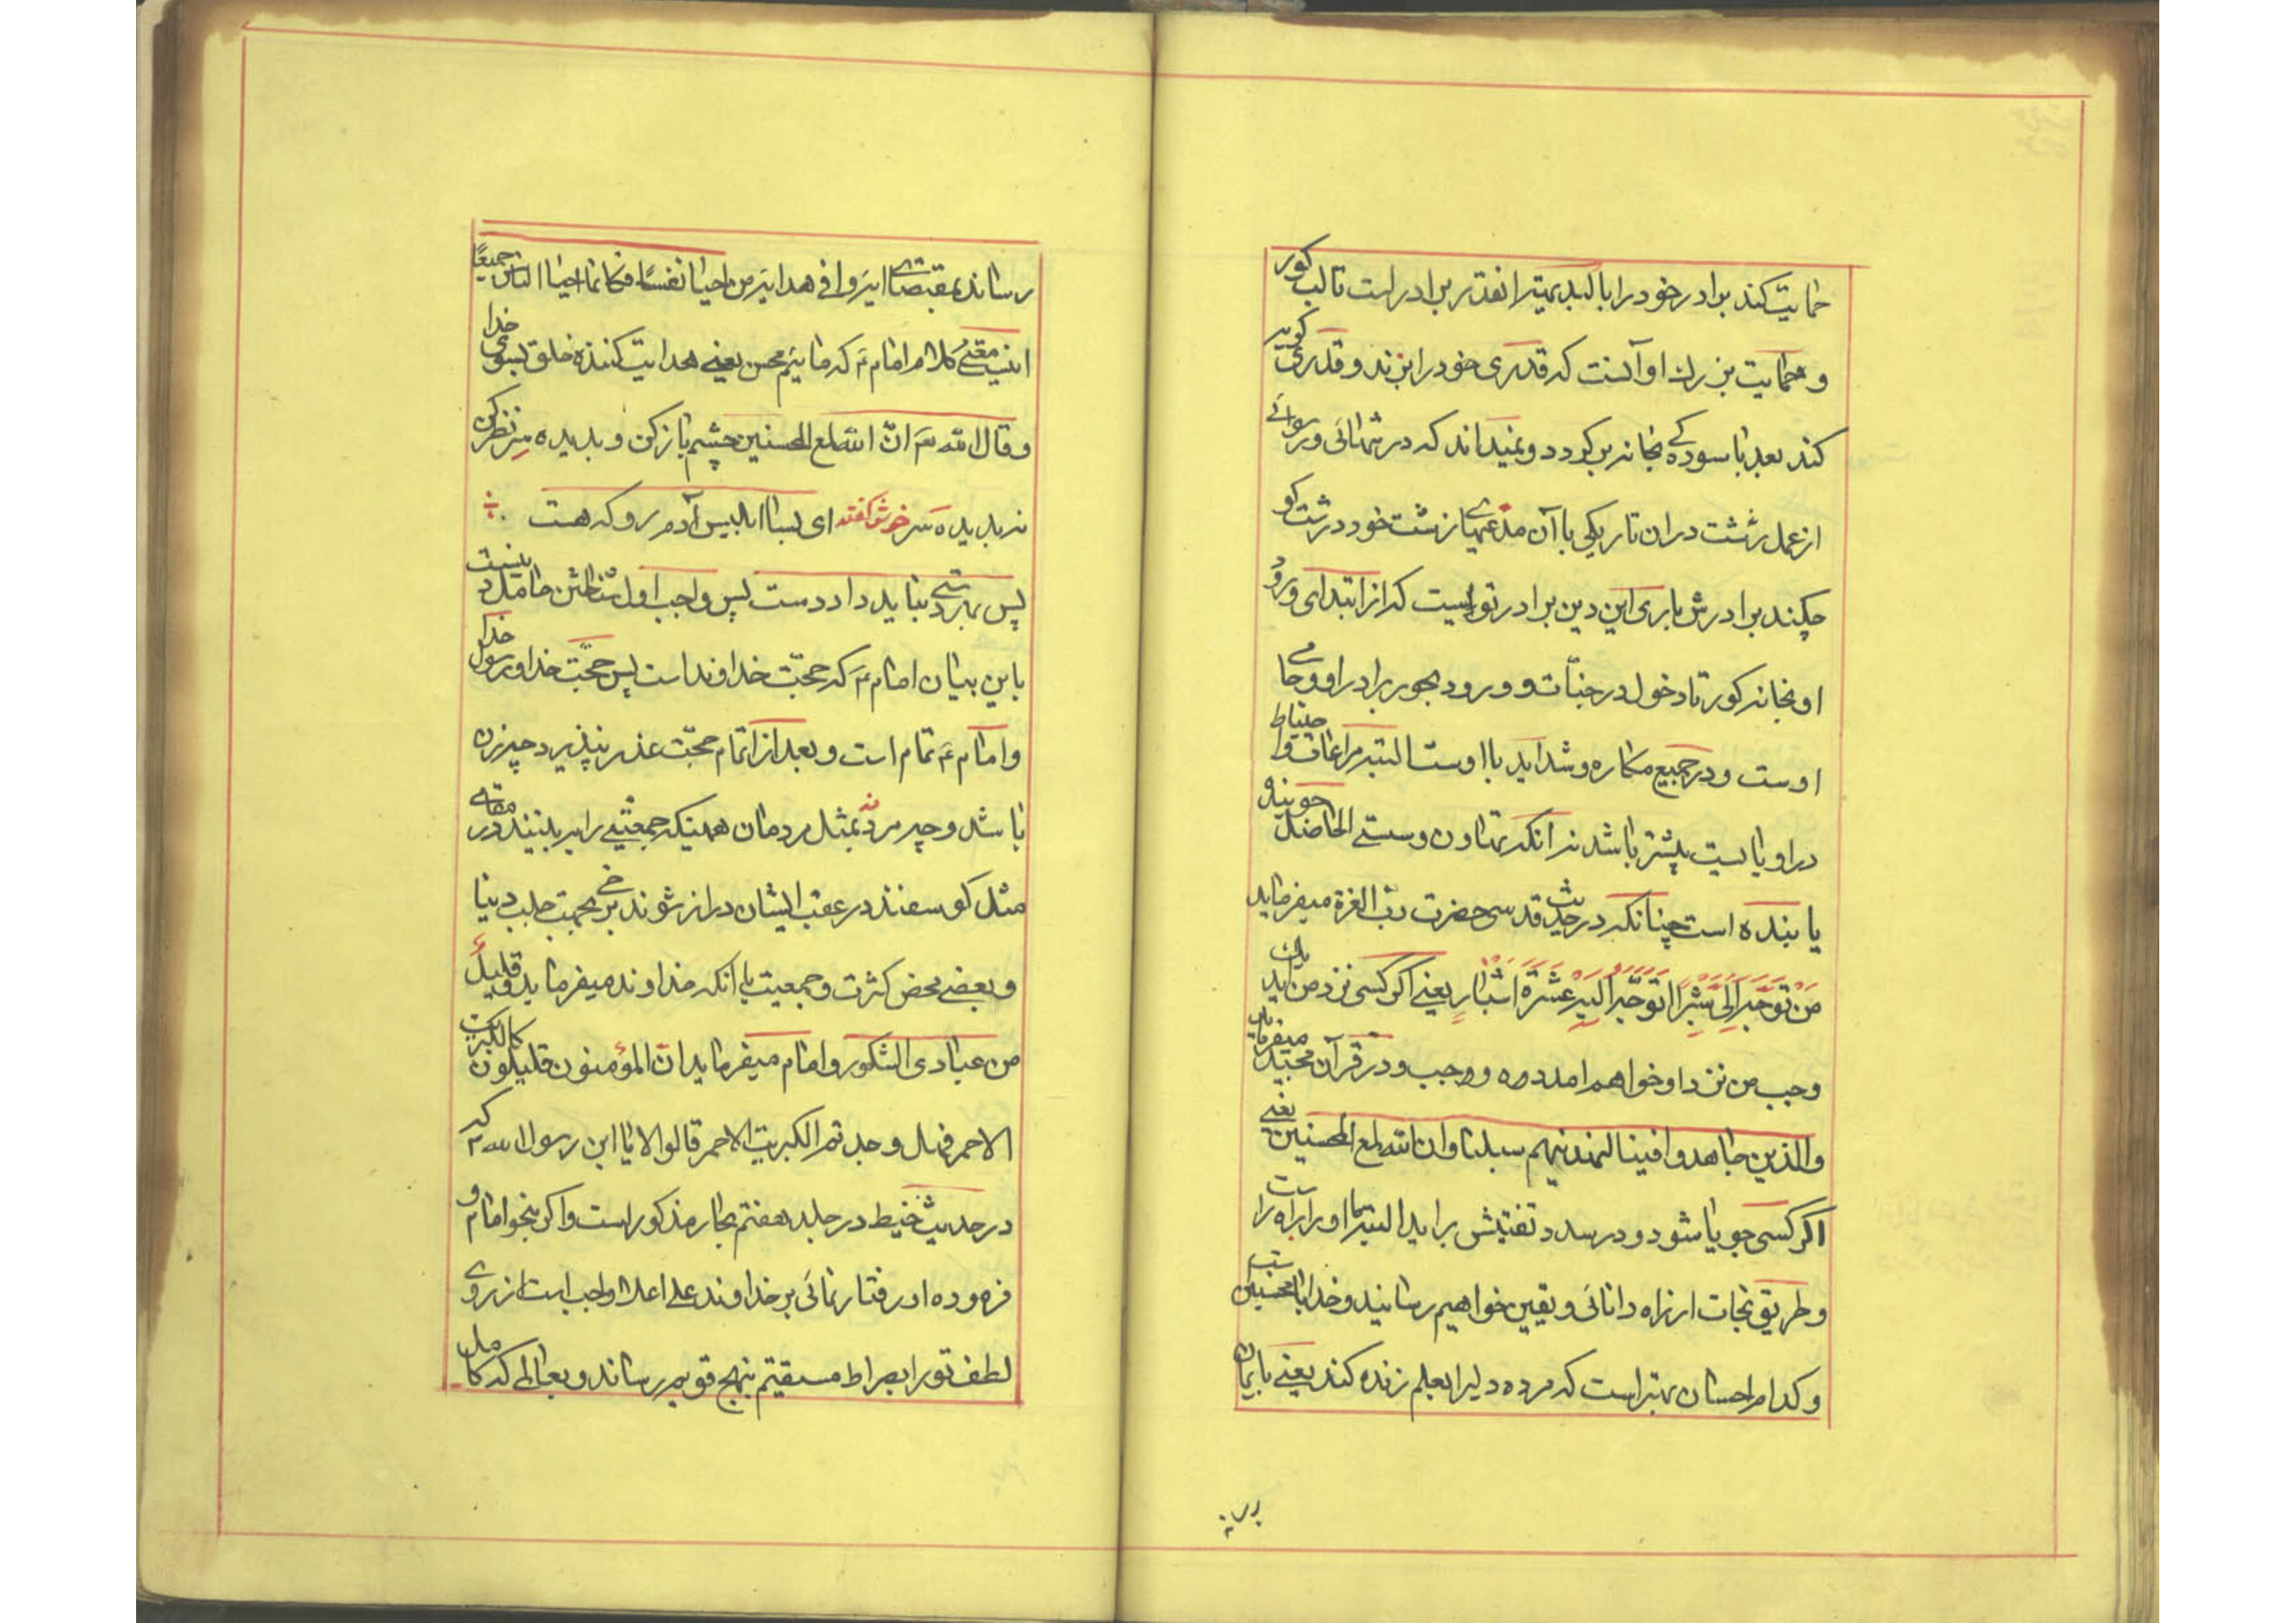 حمایت کند برادر خود را با لبد بهتر انقدر برادر است تا لب کور
و حمایت بزرك او آنست که قدری خود را بزند و قدری کویر
کند بعد با سودکی بخانه برکردد و نمیداند که در تنهائی و رسوائے
از عمل زشت در ان تاریکی با آن مدعیهای زشت خود درشت کو
چکند برادرش باری این دین برادر تو است که از ابتدای ورود
او بخانه کور تا دخول در جنّات و ورود بحور برادر او و حامی
اوست و در جمیع مکاره و شداید با اوست البته مراعات و احتیاط
در او بایست بیشتر باشد نه آنکه تهاون و سستے الحاصل جوینده
یابنده است چنانکه در حدیث قدسی حضرت ربّ العزة میفرماید
مَن توجّه الی شبرا اتوجّه الیه عشرة اشبار یعنی اکر کسی نزد من اید بك
وجب من نزد او خواهم امد ده وجب و در قرآن مجید میفرماید
والذین جاهدوا فینا لنهدینهم سبلنا وان الله لمع المحسنین یعنے
اکر کسی جویا شود و درصدد تفتیش براید البته ما او را براه راست
و طریق نجات از راه دانائی و یقین خواهیم رسانید و خدا با محسنین ست
و کدام احسان بهتر است که مرده دلیرا بعلم زنده کند یعنے بایمان
رساند
رساند بمقتضای ایه وافی هدایه من احیا نفسًا فکانما احیا الناس جمیعًا
اینست معنے کلام امام ع که مائیم محسن یعنے هدایت کننده خلق بسوی خدا
و قال الله تع انّ الله لمع المحسنین چشم باز کن و بدیده سِر نظر کن
نه بدیده سَر خوش کفته ای بسا ابلیس آدم رو که هست
پس بهر دستی نباید داد دست پس واجب اول شناختن حامل دینست
باین بیان امام ع که حجّت خداوند است پس حجّت خدا و رسول خدا
و امام ع تمام است و بعد از اتمام حجّت عذر نپذیرد چه زن
باشد و چه مرد نه بمثل مردمان همینکه جمعیتے را بر بینند در مقامے
مثل کوسفند در عقب ایشان دراز شوند برخی بجهت جلب دنیا
و بعضے محض کثرت و جمعیت با انکه خداوند میفرماید و قلیلٌ
من عبادی الشکور و امام میفرماید ان المؤمنون قلیلون کالکبریت
الاحمر فهل وجدتم الکبریت الاحمر قالوا لا یا ابن رسول الله ص که
در حدیث خیط در جلد هفتم بحار مذکور است و اکر بنحو امام و
فرموده او رفتار نمائی بر خداوند علی اعلا واجب است از روے
لطف تو را بصراط مستقیم نهج قویم رساند و بعالمی که کامل